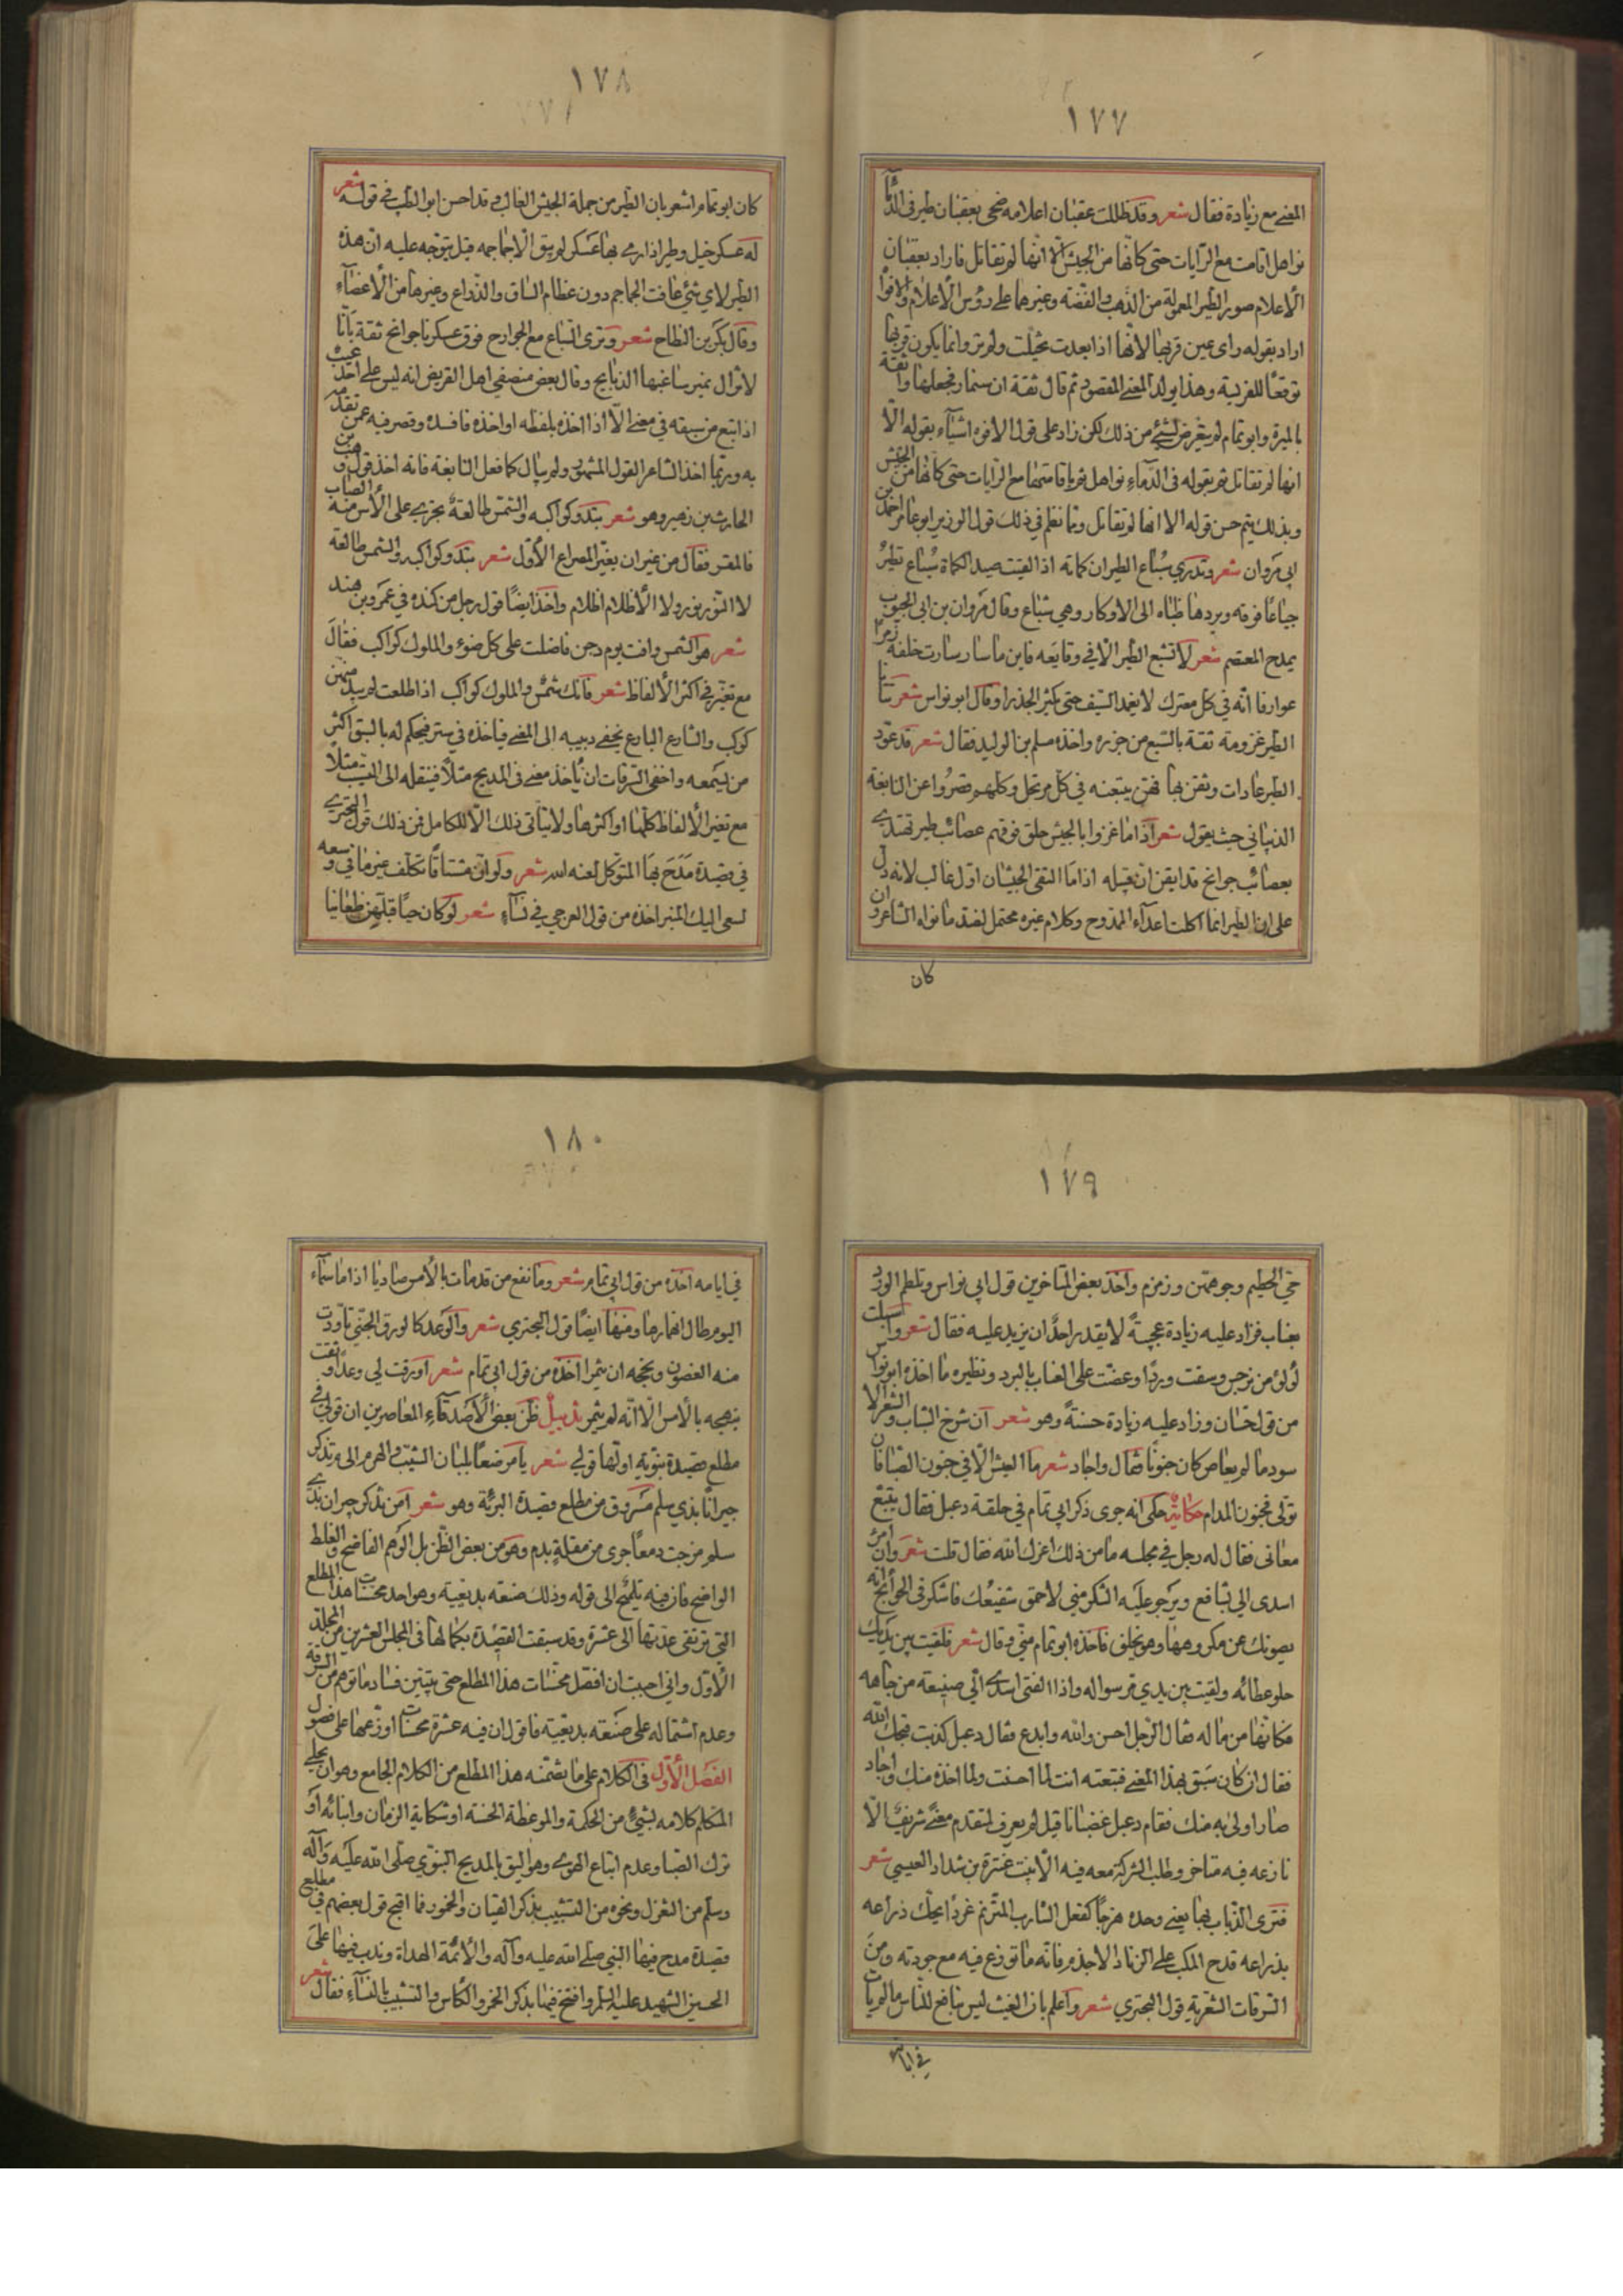 ١٧٧
المعنى مع زيادة فقال شعر وقد ظللت عقبان اعلامه ضحى بعقبان طير فى الدما
نواهل اقامت مع الرايات حتى كانها من الجيش الا انها لم تقاتل فاراد بعقبان
الاعلام صور الطير المعمولة من الذهب والفضة وغيرها على رؤس الاعلام والافوا
اراد بقوله راى عين قربها لانها اذا بعدت تخيلت ولم تر وانما يكون قربها
توقعا للفريسة وهذا يولد المعنى المقصود ثم قال ثقة ان ستمار فجعلها واثقة
بالميرة وابو تمام لم يتعرض لشئ من ذلك لكن زاد على قول الافوه اشياء بقوله الا
انها لم تقاتل ثم بقوله فى الدماء نواهل ثم باقامتها مع الرايات حتى كانها من الجيش
وبذلك يتم حسن قوله الا انها لم تقاتل وما نعلم فى ذلك قول الوزير ابو عامر احمد بن
ابى مروان شعر وتدرى سباع الطير ان كماته اذا لقيت صيد الكماة سباع تطير
جياعا فوقه ويردها ظباه الى الاوكار وهى شباع وقال مروان بن ابى الجنوب
يمدح المعتصم شعر لا تشبع الطير الا فى وقايعه فاين ما سار سارت خلفه زمرا
عوارفا انه فى كل معترك لا يغمد السيف حتى يكثر الجذرا وقال ابو نواس شعر تتأيا
الطير غزوته ثقة بالشبع من جزره واخذه مسلم بن الوليد فقال شعر قد عود
الطير عادات وثقن بها فهن يتبعنه فى كل مرتحل وكلهم قصروا عن النابغة
الذبيانى حيث يقول شعر اذا ما غزوا بالجيش حلق فوقهم عصائب طير تهتدى
بعصائب جوانح قد ايقن ان قبيله اذا ما التقى الجيشان اول غالب لانه دل
على ان الطير انما اكلت اعداء الممدوح وكلام غيره محتمل لضد ما نواه الشاعر وان
كان
١٧٨
كان ابو تمام اشعر بان الطير من جملة الجيش الغالب وقد احسن ابو الطيب فى قوله شعر
له عسكر خيل وطير اذا رمى بها عسكر لم يبق الا جماجمه قيل يتوجه عليه ان هذه
الطير لاى شئ عافت الجماجم دون عظام الساق والذراع وغيرها من الاعضاء
وقال بكر بن النطاح شعر وترى السباع مع الجوارح فوق عسكرنا جوانح ثقة بانا
لا نزال نمير ساغبها الذبايح وقال بعض منصفى اهل القريض انه ليس على احد عيب
اذا اتبع من سبقه فى معنى الا اذا اخذه بلفظه او اخذه فافسده وقصر فيه عمن تقدم
به وربما اخذ الشاعر القول المشهور ولم يبال كما فعل النابغة فانه اخذ قول وهب بن
الحارث بن زهير وهو شعر تبدو كواكبه والشمس طالعة تجرى على الاس منه الصاب
فالمقر فقال من غير ان يغير المصراع الاول شعر تبدو كواكبه والشمس طالعة
لا النور نور ولا الاظلام اظلام واخذ ايضا قول رجل من كنده فى عمرو بن هند
شعر هو الشمس وافت يوم دجن فاضلت على كل ضوء والملوك كواكب فقال
مع تغير فى اكثر الالفاظ شعر فانك شمس والملوك كواكب اذا طلعت لم يبد منهن
كوكب والشارع البارع يخفى دبيبه الى المعنى فياخذه فى ستر فيحكم له بالسبق اكثر
من يسمعه واخفى السرقات ان ياخذ معنى فى المديح مثلا فينقله الى النسيب مثلا
مع تغير الالفاظ كلها او اكثرها ولا يتاتى ذلك الا للكامل فمن ذلك قول البحترى
فى قصيدة مدح بها المتوكل لعنه الله شعر ولو ان مشتاقا تكلف غير ما فى وسعه
لسعى اليك المنبر اخذه من قول العرجى فى نساء شعر لو كان حيا قبلهن ظعاينا
١٧٩
حى الحطيم وجوههن وزمزم واخذ بعض المتاخرين قول ابى نواس وتلطم الورد
بعناب فزاد عليه زيادة عجيبة لا يقدر احد ان يزيد عليه فقال شعر واسبلت
لؤلؤ من نرجس وسقت وردا وعضت على العناب بالبرد ونظيره ما اخذه ابو نواس
من قول حسان وزاد عليه زيادة حسنة وهو شعر ان شرخ الشباب والشعر الا
سود ما لم يعاص كان جنونا فقال واجاد شعر ما العيش الا فى جنون الصبا فان
تولى فجنون المدام حكاية حكى انه جرى ذكر ابى تمام فى حلقة دعبل فقال يتبع
معانى فقال له رجل فى مجلسه ما من ذلك اعزك الله فقال قلت شعر وان امرء
اسدى الى بشافع ويرجو عليه الشكر منى لاحمق شفيعك فاشكر فى الحوائج انه
يصونك عن مكروهها وهو يخلق فاخذه ابو تمام منى وقال شعر فلقيت بين يديك
حلو عطائه ولقيت بين يدى مر سواله واذا الفتى اسدى الى صنيعة من جاهه
فكانها من ماله فقال الرجل احسن والله وابدع فقال دعبل كذبت قبحك الله
فقال ان كان سبق بهذا المعنى فتبعته انت لما احسنت ولما اخذه منك واجاد
صار اولى به منك فقام دعبل غضبانا قيل لم يعرف لمتقدم معنى شريف الا
نازعه فيه متاخر وطلب الشركة معه فيه الا بيت عنترة بن شداد العبسى شعر
فترى الذباب بها يغنى وحده هزجا كفعل الشارب المترنم غردا يحك ذراعه
بذراعه قدح المكب على الزناد الاجذم فانه ما توزع فيه مع جودته ومن
السرقات الشعرية قول البحترى شعر واعلم بان الغيث ليس بنافع للناس ما لم يات
فى ايامه
١٨٠
فى ايامه اخذه من قول ابى تمام شعر وما نفع من قد مات بالامس صاديا اذا ما سماء
اليوم طال انهمارها ومنها ايضا قول البحترى شعر والوعد كالورق الجنى تاودت
منه الغصون ونجحه ان يثمرا اخذه من قول ابى تمام شعر اورقت لى وعدا وثقت
بنهجه بالامس الا انه لم يثمر تذييل ظن بعض الاصدقاء المعاصرين ان قولى فى
مطلع قصيدة نبوية اولها قولى شعر يا مرضعا بلبان الشيب والهرم الى م تذكر
جيرانا بذى سلم مسروق من مطلع قصيدة البردة وهو شعر امن تذكر جيران بذى
سلم مزجت دمعا جرى من مقلة بدم وهو من بعض الظن بل الوهم الفاضح والغلط
الواضح فان فيه تلميح الى قوله وذلك صنعة بديعية وهو احد محسنات هذا المطلع
التى ترتقى عدتها الى عشرة وقد سبقت القصيدة بكمالها فى المجلس العشرين من المجلد
الاول وانى احببت ان افصل محسنات هذا المطلع حتى يتبين فساد ما توهم من السرقة
وعدم اشتماله على صنعة بديعية فاقول ان فيه عشرة محسنات اوزعها على فصول
الفصل الاول فى الكلام على ما يضمنه هذا المطلع من الكلام الجامع وهو ان يحلى
المتكلم كلامه بشئ من الحكمة والموعظة الحسنة او شكاية الزمان وابنائه او
ترك الصبا وعدم اتباع الهوى وهو اليق بالمديح النبوى صلى الله عليه وآله
وسلم من الغزل ونحوه من التشبيب بذكر القيان والخمور فما اقبح قول بعضهم فى مطلع
قصيدة مدح فيها النبى صلى الله عليه وآله والائمة الهداة وندب فيها على
الحسين الشهيد عليه السلم وافتتح فيها بذكر الخمر والكاس والتشبيب بالنساء فقال شعر